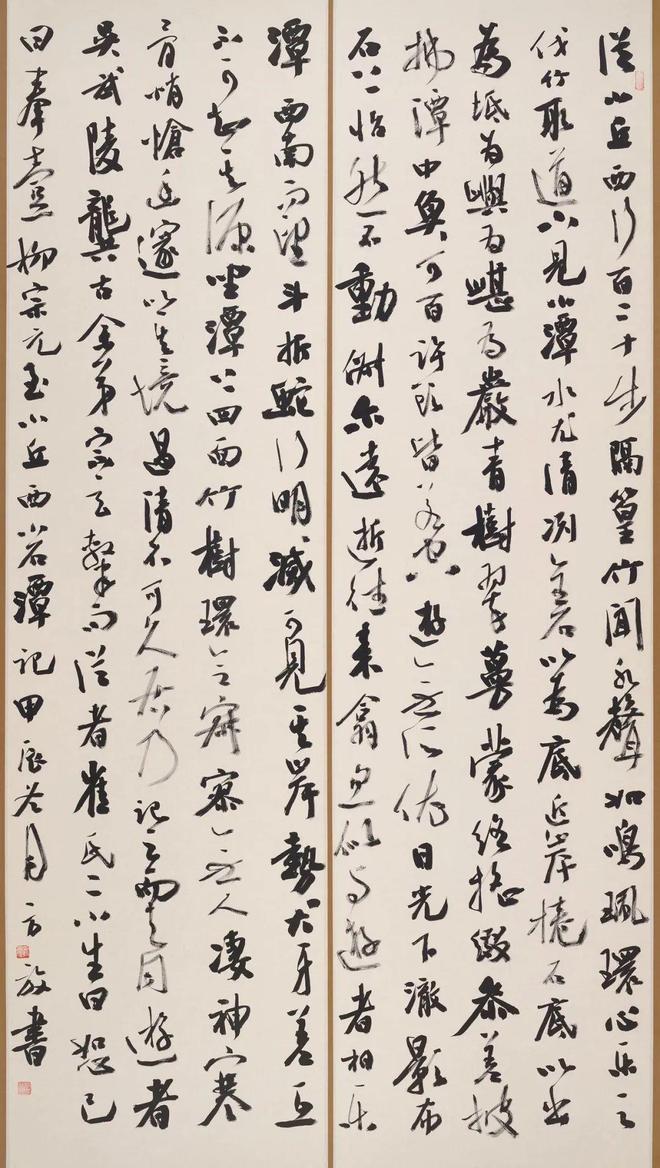 從小丘西行百二十步隔篁竹聞水聲如鳴珮環心樂之
伐竹取道下見小潭水尤清冽全石以為底近岸捲石底以出
為坻為嶼為嵁為巖青樹翠蔓蒙絡搖綴參差披
拂潭中魚可百許頭皆若空遊無所依日光下澈影布
石上怡然不動俶尔遠逝往來翕忽似與遊者相樂
潭西南而望斗折蛇行明滅可見其岸勢犬牙差互
不可知其源坐潭上四面竹樹環合寂寥無人淒神寒
骨悄愴幽邃以其境過清不可久居乃記之而去同遊者
吳武陵龔古余弟宗玄隸而從者崔氏二小生曰恕己
曰奉壹柳宗元至小丘西小石潭記甲辰冬月方放書